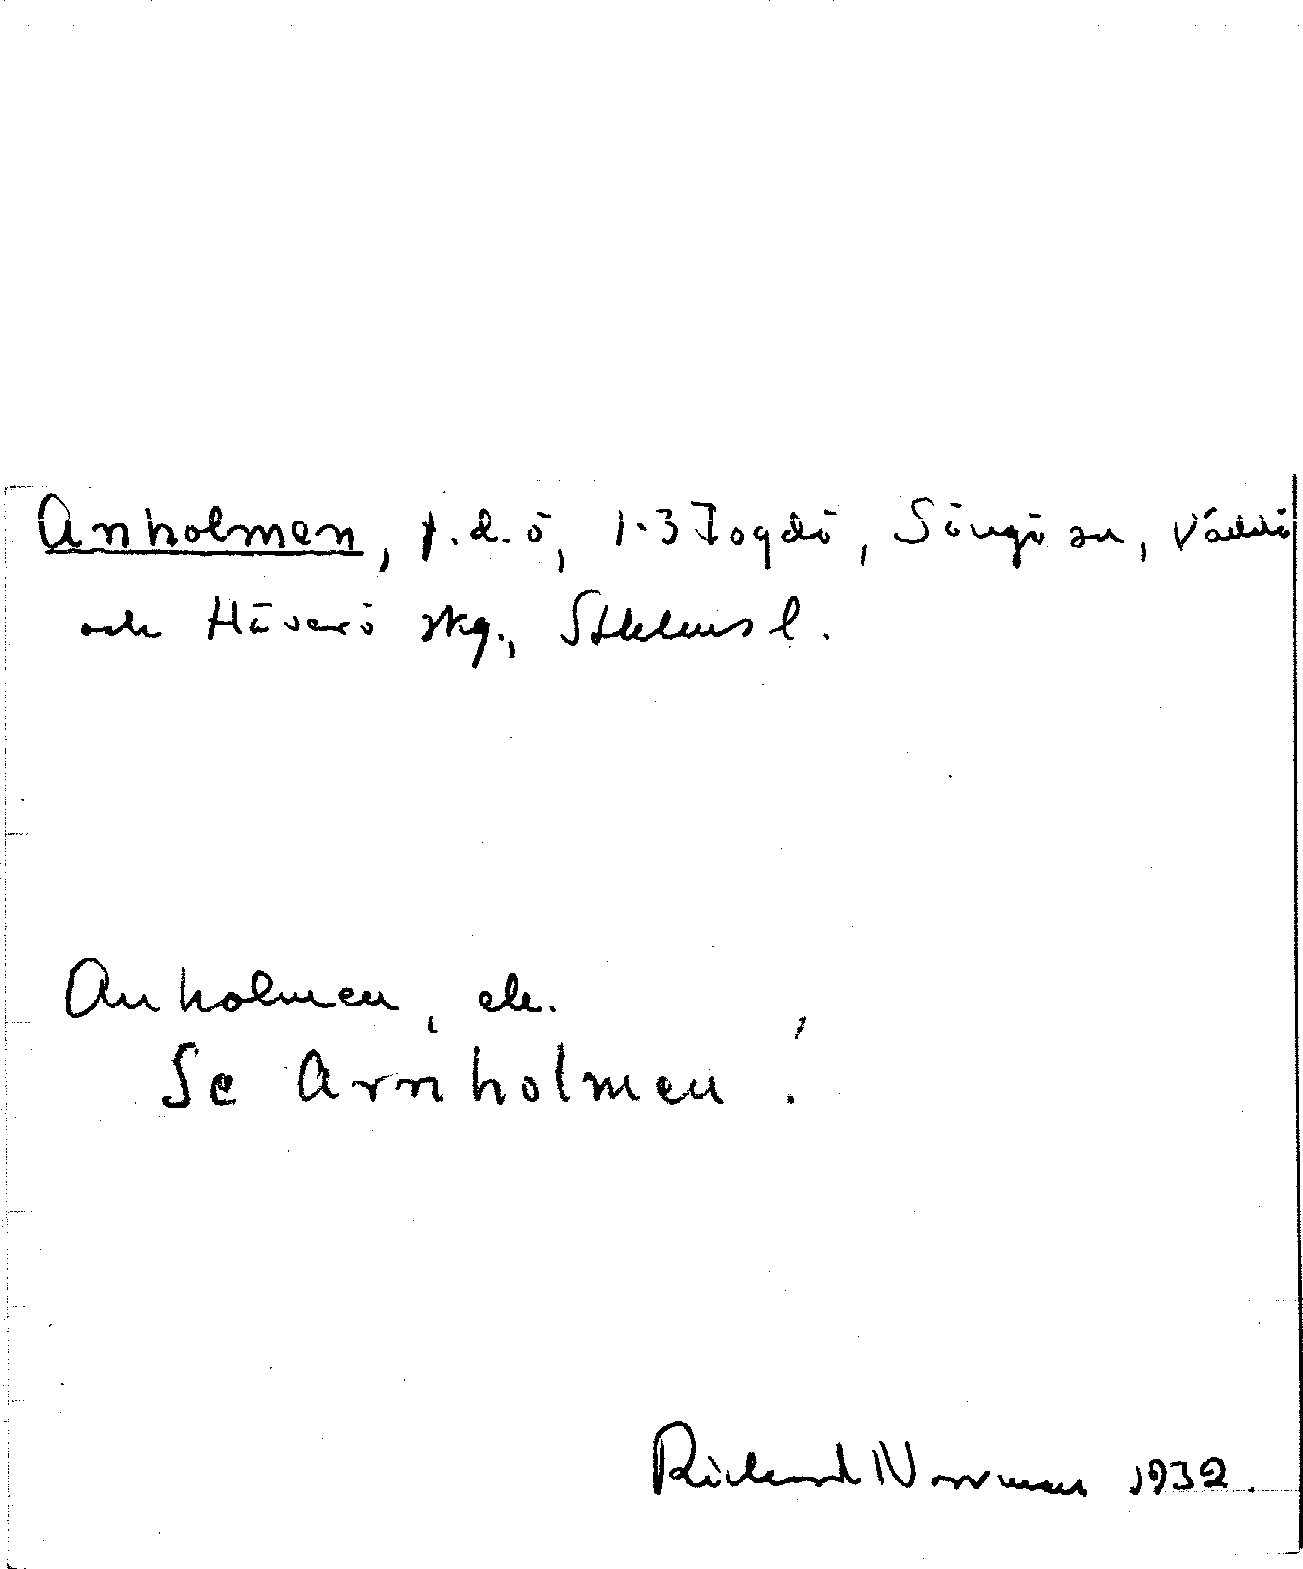 Anholmen, f.d. ö, 1-3 Fogdö, Singö sn, Väddö
och Häverö skg., Sthlms l.
Anholmen, ek.
Se Arnholmen!
Richard Norrman 1932.